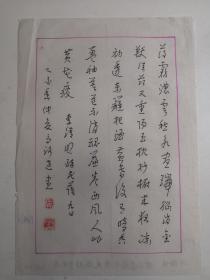 薄霧濃雲愁永晝瑞腦消金
獸佳節又重陽玉枕紗橱半夜涼
初透東籬把酒黄昏後有暗香
盈袖莫道不消魂簾卷西風人比
黄花瘦 李清照醉花陰九日
乙亥仲夏